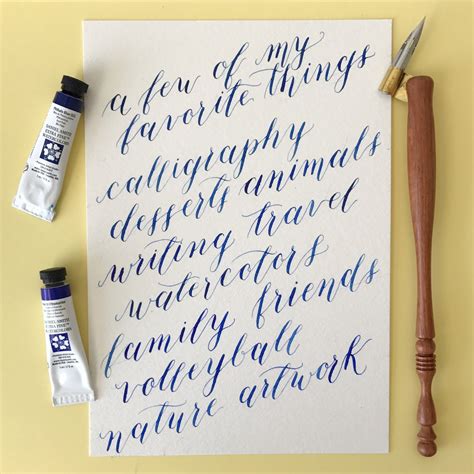 a few of my
favorite things
calligraphy
desserts animals
writing travel
watercolors
family friends
volleyball
nature artwork
DANIEL SMITH
EXTRA FINE
WATERCOLORS
DANIEL SMITH
EXTRA FINE
WATERCOLORS